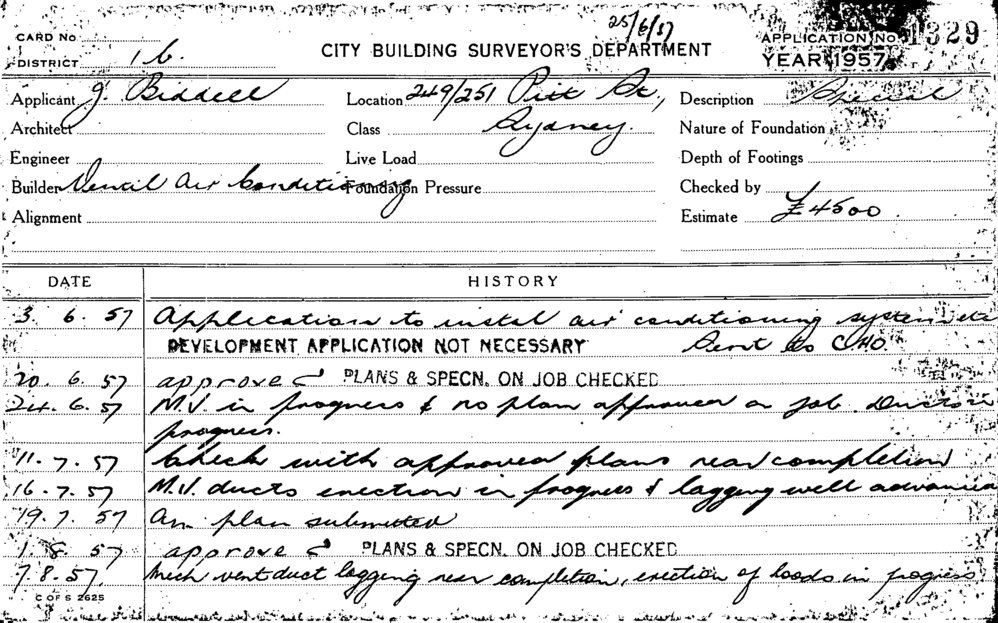 25/6/57
CARD No CITY BUILDING SURVEYOR'S DEPARTMENT APPLICATION No. 1329
DISTRICT 16. YEAR 1957
Applicant J. Biddell Location 249/251 Pitt St., Description Special
Architect Class Sydney. Nature of Foundation
Engineer Live Load Depth of Footings
Builder Ventil Air Conditioning Foundation Pressure Checked by
Alignment Estimate £4500
DATE HISTORY
3. 6. 57 Application to instal air conditioning system etc
DEVELOPMENT APPLICATION NOT NECESSARY Sent to CHO.
20. 6. 57 approved PLANS & SPECN. ON JOB CHECKED
24. 6. 57 M.V. in progress & no plan approved on job. Ducts in
progress.
11. 7. 57 Check with approved plans near completion
16. 7. 57 M.V. ducts erection in progress & lagging well advanced
19. 7. 57 Am plan submitted
1. 8. 57 approved PLANS & SPECN. ON JOB CHECKED
7. 8. 57. Mech vent duct lagging near completion, erection of hoods in progress
C OF S 2625